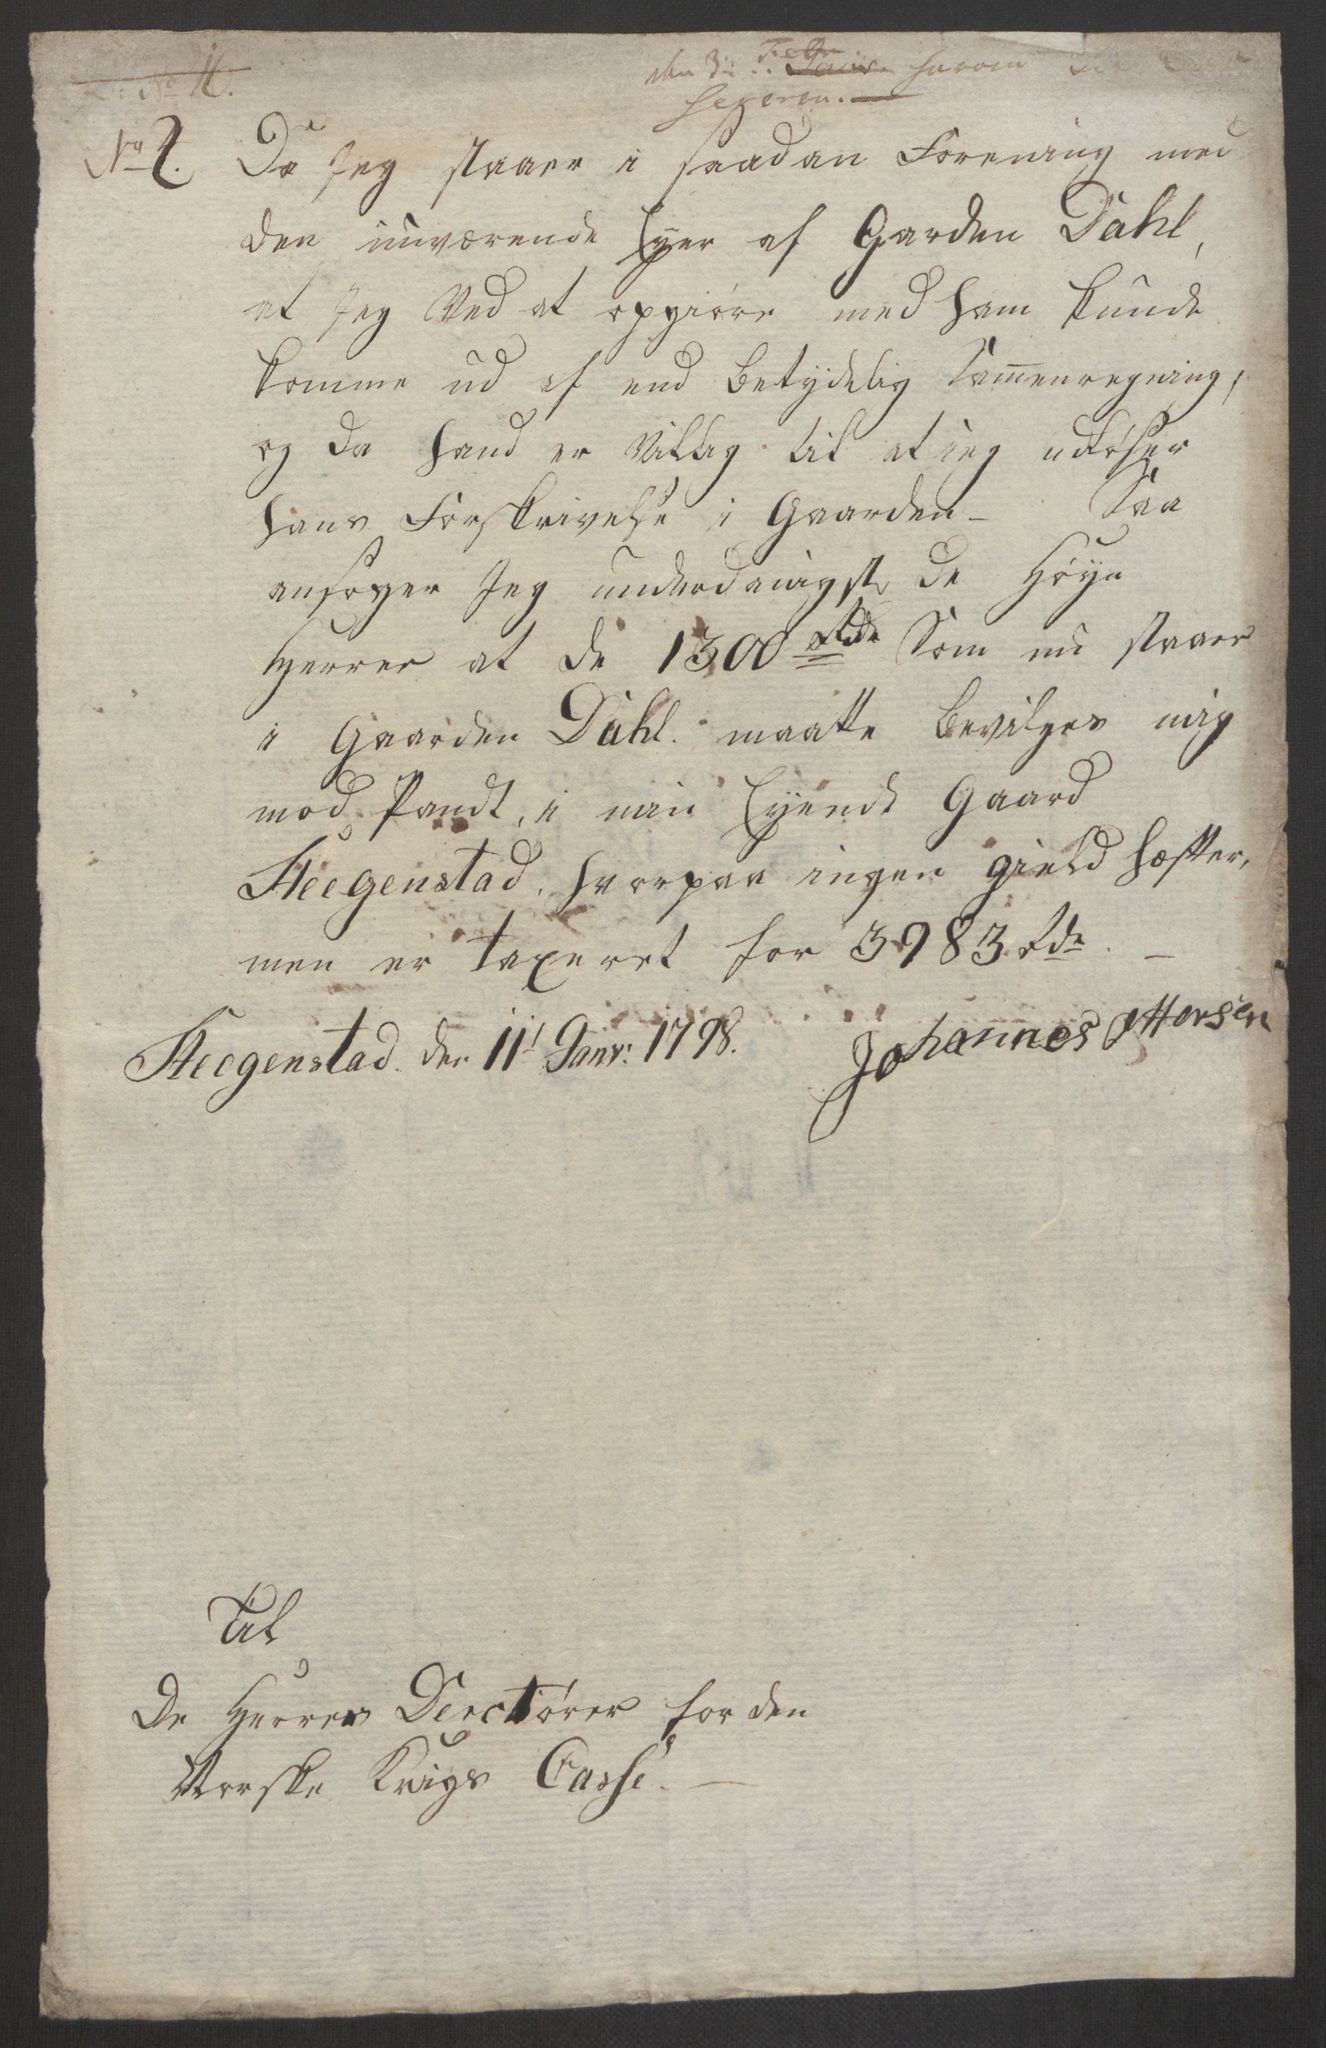 No 11.
den 3die Febr. Janv. herom
No 2. Da Jeg staaer i saadan Forening med
den nuværende Eyer af Garden Dahl,
at Jeg Ved at opgiöre med ham kunde
komme ud af end betydelig Sammenregning,
og da hand er Villig til at jeg udløser
hans Forskrivelse i Gaarden - Saa
ansøger Jeg underdanigst de Höye
Herrer at de 1300 rdr Som nu staaer
i Gaarden Dahl. maatte bevilges mig
mod Pandt, i min Eyende Gaard
Steegenstad, hvorpaa ingen gield hæfter,
men er taxeret for 3983 rdr. -
Steegenstad. den 11t Janv: 1798. Johannes Ottersen
Til
De Herrer Derctörer for den
Norske Krigs Casse. -